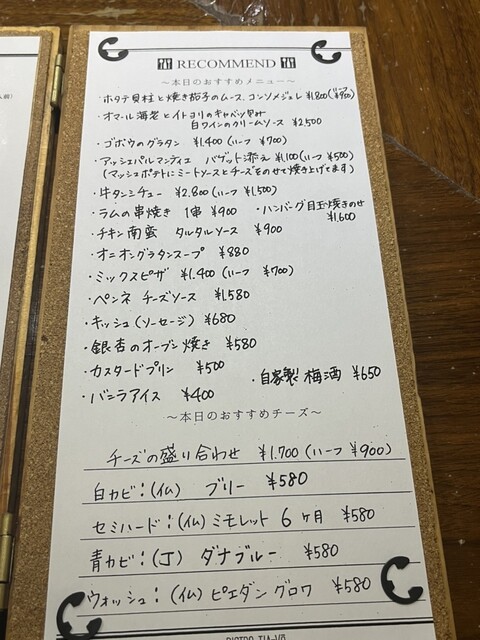 RECOMMEND
～本日のおすすめメニュー～
・ホタテ貝柱と焼き茄子のムース、コンソメジュレ ¥1,800(ハーフ ¥950)
・オマール海老とイトヨリのキャベツ包み
白ワインのクリームソース ¥2,500
・ゴボウのグラタン ¥1,400 (ハーフ ¥700)
・アッシェパルマンティエ バゲット添え ¥1,100 (ハーフ ¥500)
(マッシュポテトにミートソースとチーズをのせて焼き上げてます)
・牛タンシチュー ¥2,800 (ハーフ ¥1,500)
・ラムの串焼き 1串 ¥900 ・ハンバーグ目玉焼きのせ
¥1,600
・チキン南蛮 タルタルソース ¥900
・オニオングラタンスープ ¥880
・ミックスピザ ¥1,400 (ハーフ ¥700)
・ペンネ チーズソース ¥1,580
・キッシュ (ソーセージ) ¥680
・銀杏のオーブン焼き ¥580
・カスタードプリン ¥500
・自家製梅酒 ¥650
・バニラアイス ¥400
～本日のおすすめチーズ～
チーズの盛り合わせ ¥1,700 (ハーフ ¥900)
白カビ:(仏) ブリー ¥580
セミハード:(仏) ミモレット 6ヶ月 ¥580
青カビ:(丁) ダナブルー ¥580
ウォッシュ:(仏) ピエダングロワ ¥580